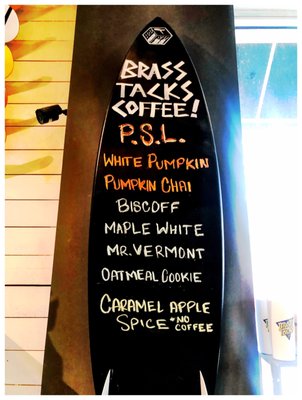 BRASS
TACKS
COFFEE!
P.S.L.
WHITE PUMPKIN
PUMPKIN CHAI
BISCOFF
MAPLE WHITE
MR. VERMONT
OATMEAL COOKIE
CARAMEL APPLE
SPICE *NO
COFFEE